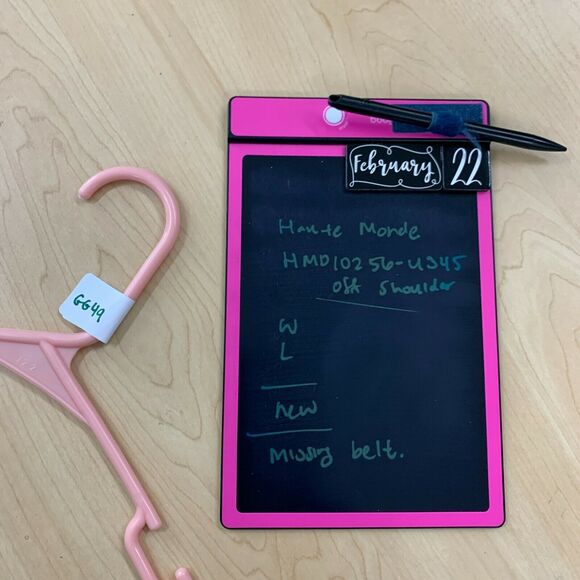 February 22
Haute Monde
HMD10256-U345
Off Shoulder
W
L
new
Missing belt.
GG49